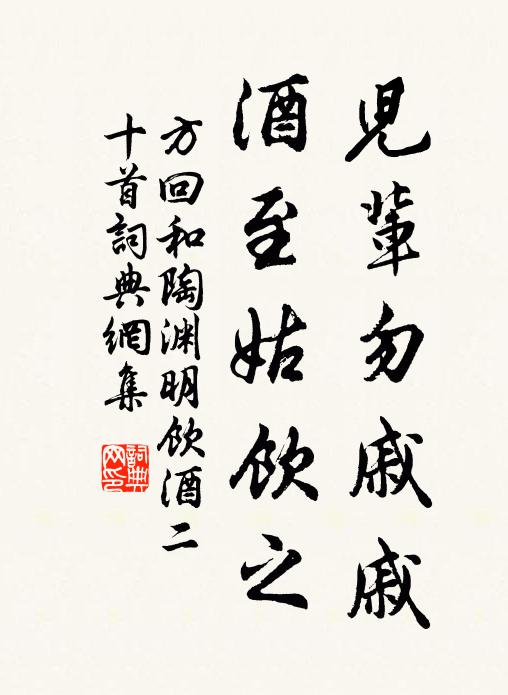 児輩勿戚戚
酒至姑飲之
方回和陶渊明飲酒二
十首詞典網集
詞典
网印